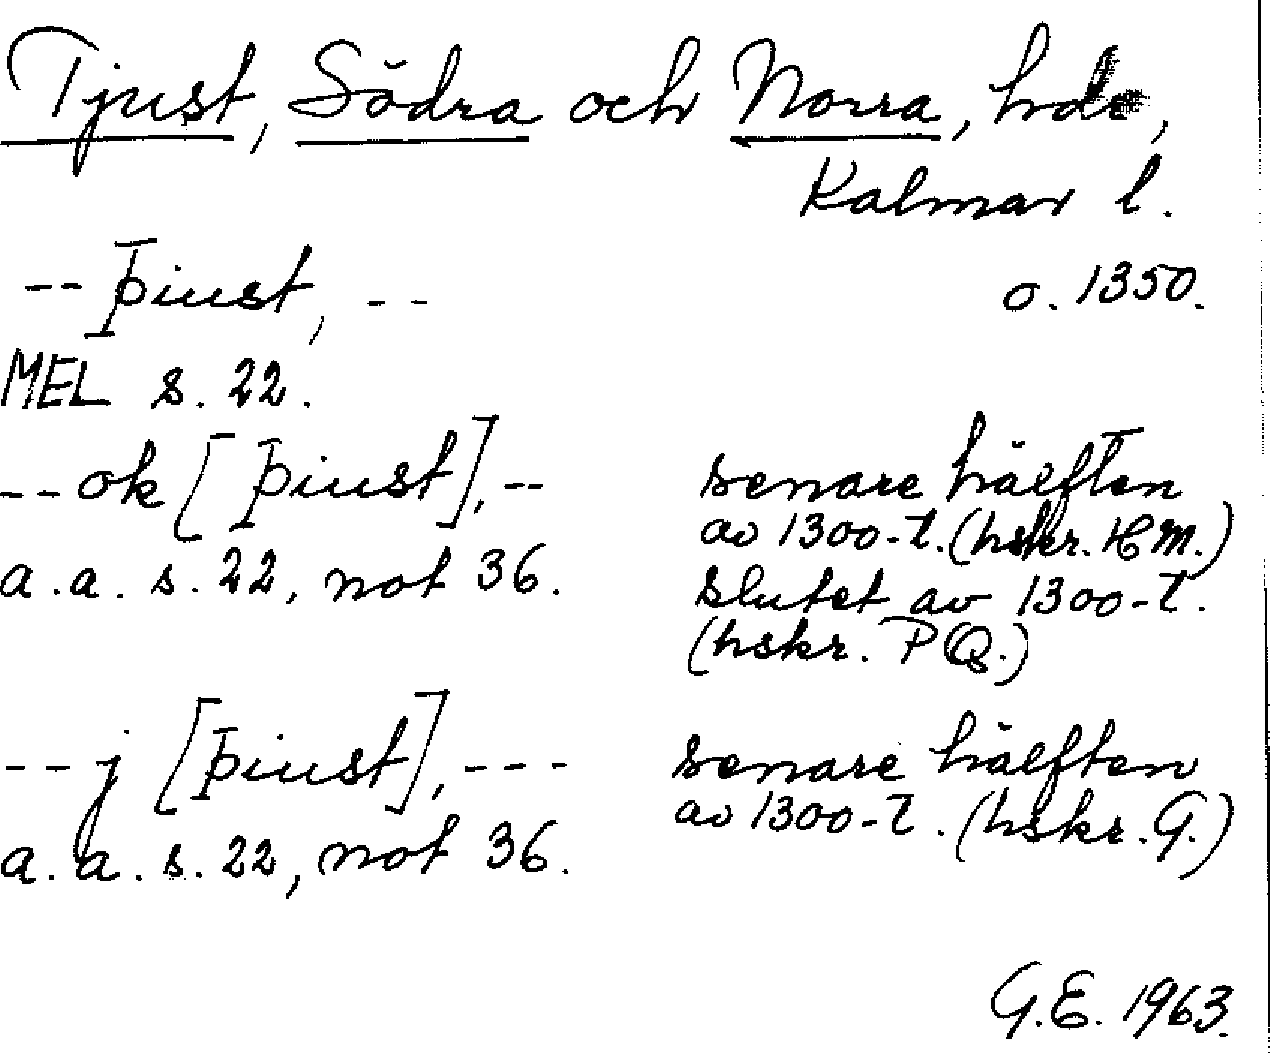 Tjust, Södra och Norra, hde,
Kalmar l.
-- þiust, -- o. 1350.
MEL s. 22.
-- ok [þiust], -- senare hälften
av 1300-t. (hskr. H M.)
a.a. s. 22, not 36. slutet av 1300-t.
(hskr. P Q.)
-- j [þiust], --- senare hälften
av 1300-t. (hskr. G.)
a.a. s. 22, not 36.
G.E. 1963.